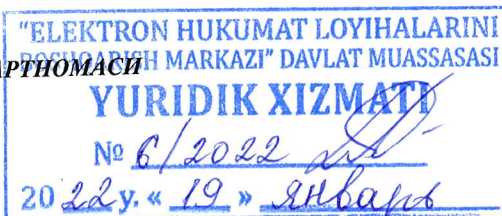 "ELEKTRON HUKUMAT LOYIHALARINI
BOSHQARISH MARKAZI" DAVLAT MUASSASASI
РТНОМАСИ
YURIDIK XIZMATI
№ 6/2022
20 22 y. « 19 » январь